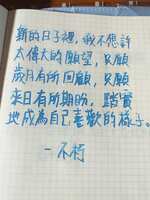 新的日子裡，我不應許
太偉大的願望，只願
歲月有所回顧，只願
來日有所期盼，踏實
地成為自己喜歡的樣子。
－不朽